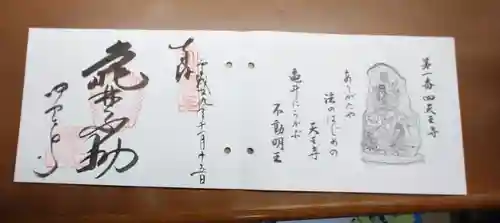 第一番四天王寺
ありがたや
法のはじめの
天王寺
亀井にうかぶ
不動明王
奉
平成
十一月十五日
亀井不動
四天王寺